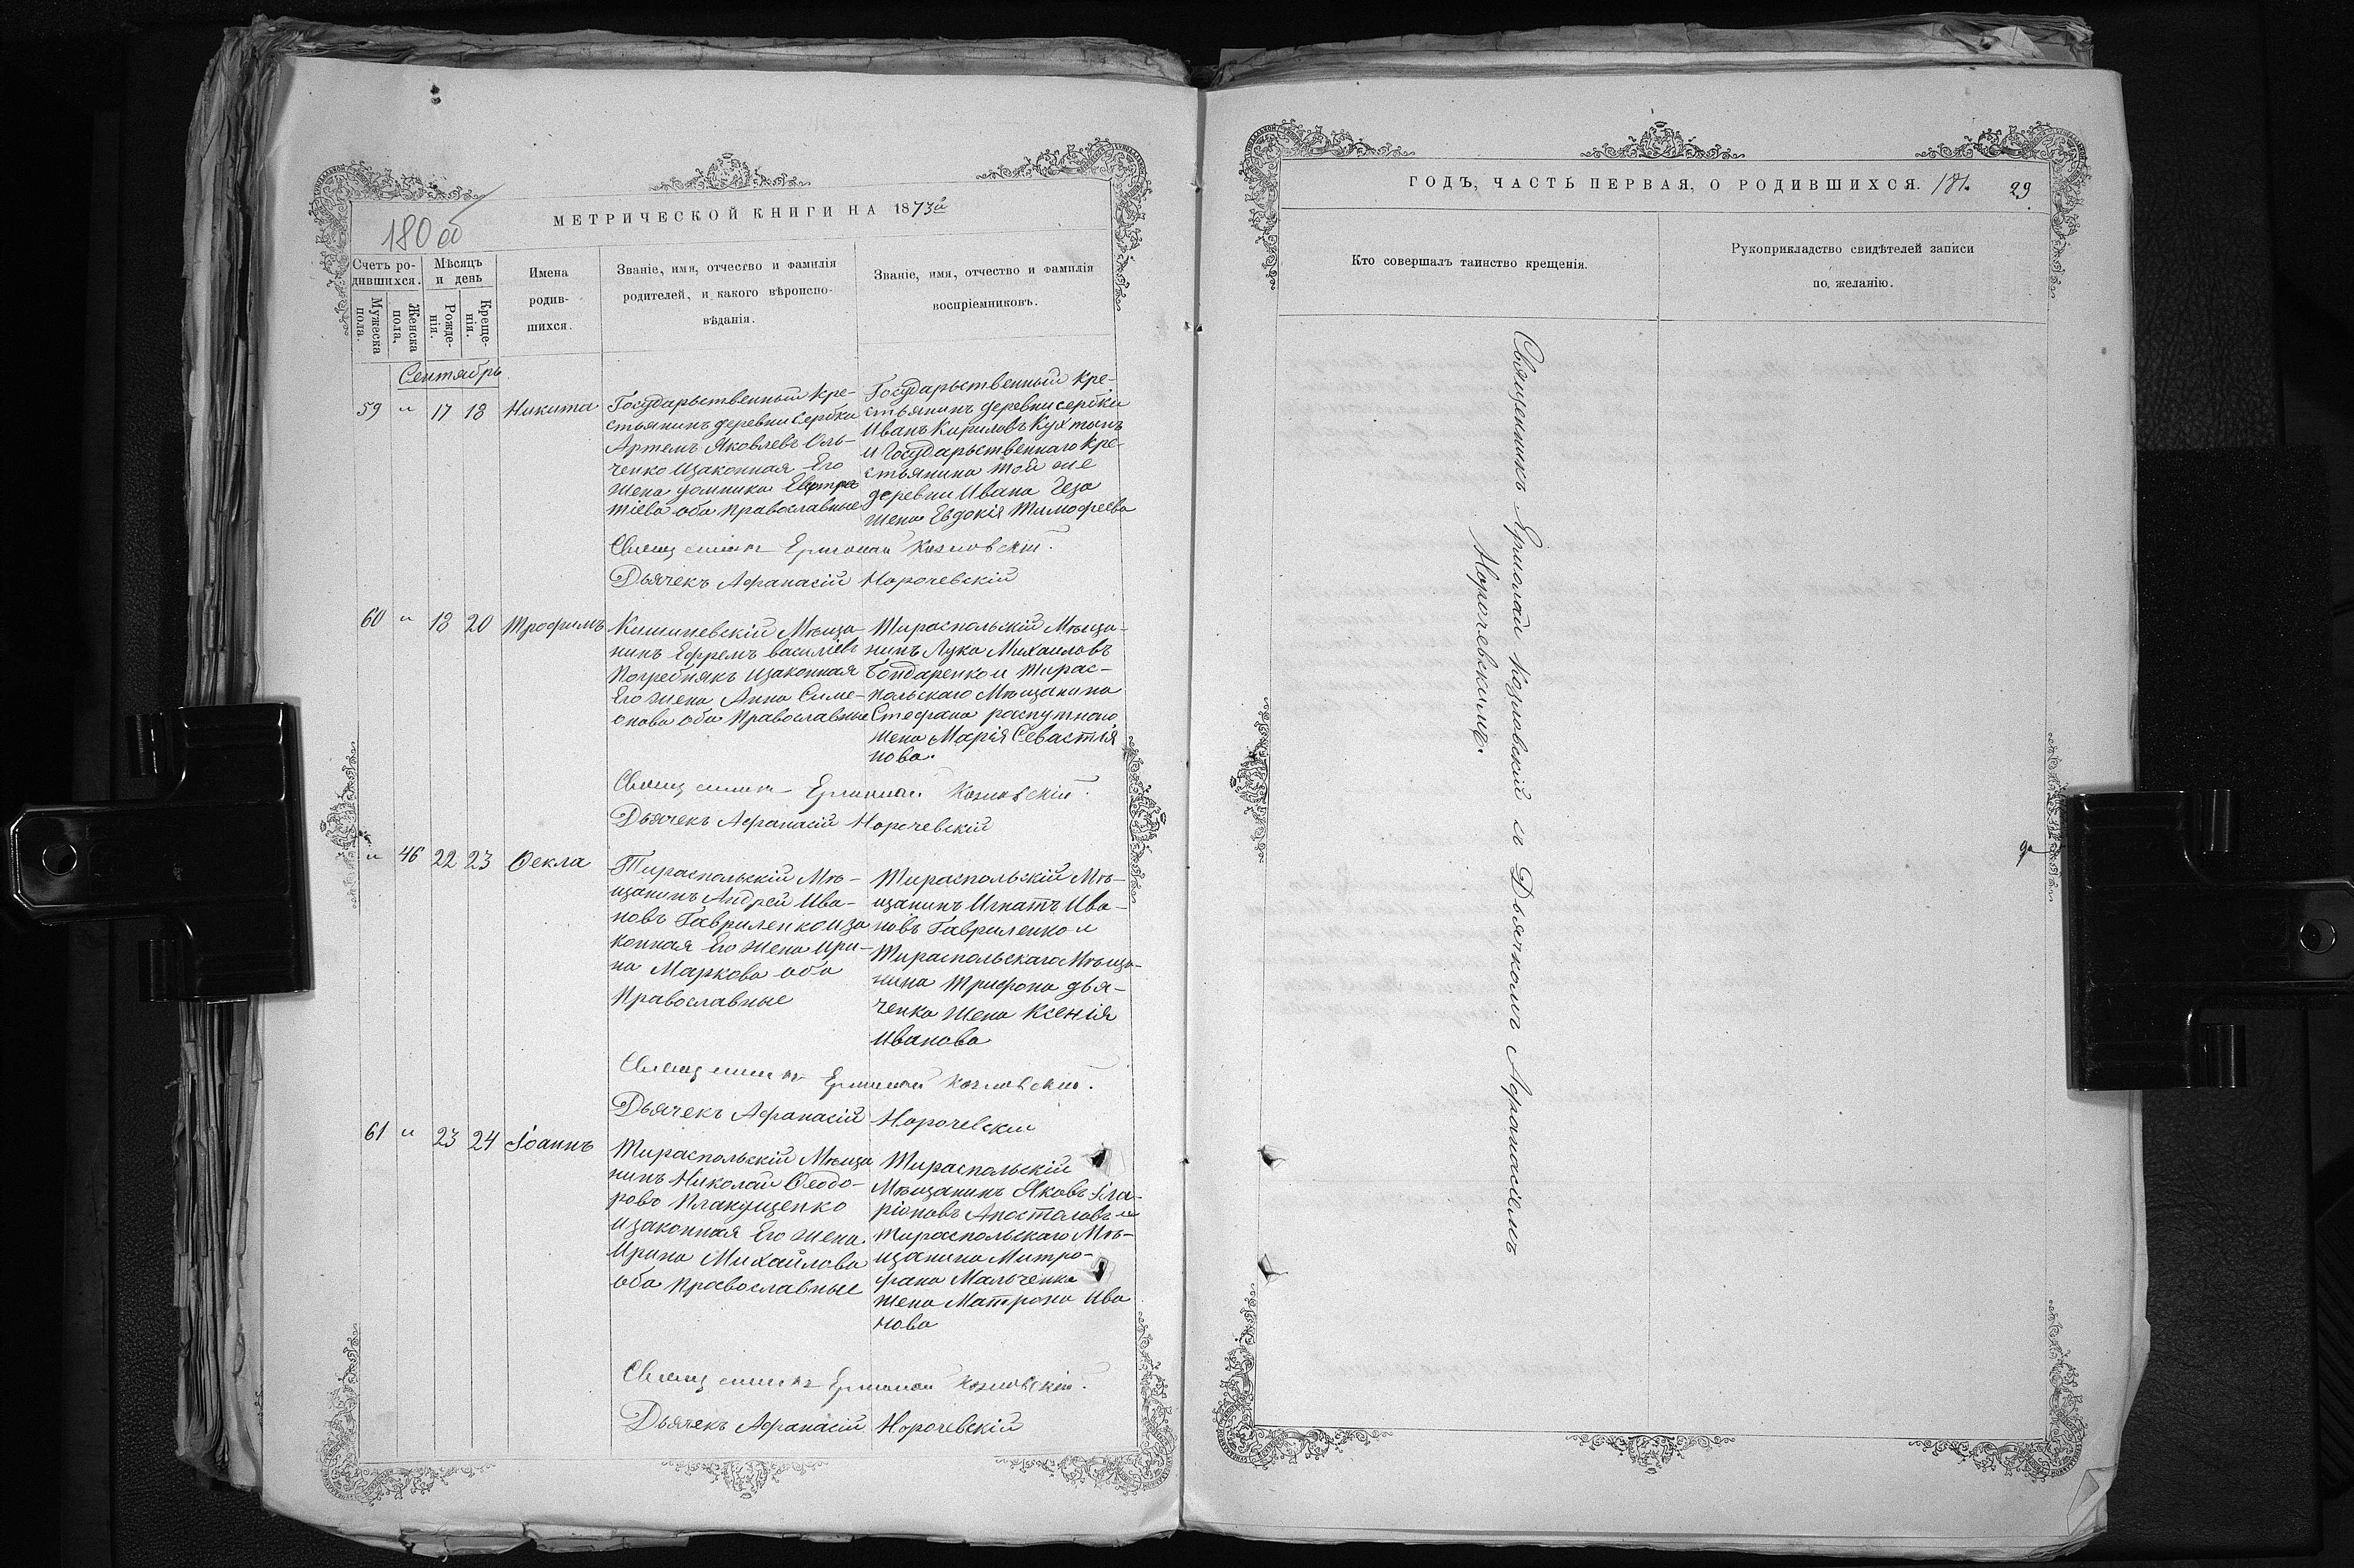 МЕТРИЧЕСКОЙ КНИГИ НА 1873й
180 об
Счетъ ро-
дившихся.
Мужеска
пола.
Женска
пола.
Мѣсяцъ
и день
Рожде-
нія.
Креще-
нія.
Имена
родив-
шихся.
Званіе, имя, отчество и фамилія
родителей, и какого вѣроиспо-
вѣданія.
Званіе, имя, отчество и фамилія
воспріемниковъ.
Сентябрь
59 " 17 18 Никита
Государьственный кре-
стьянинъ деревни сербки
Артемъ Яковлевъ
ченко изаконная Его
жена домника Евстра
тіева оба православные
Государьственный кре-
стьянинъ деревни сербки
Иванъ Кириловъ Кухтынъ
и Государьственнаго кре-
стьянина той же
деревни Ивана Чеза
жена Евдокія Тимофеева
Священникъ Ермолай Козловскій.
Дьячекъ Афанасій Норочевскій
60 " 18 20 Трофимъ
Кишиневскій Мѣща-
нинъ Ефремъ василіевъ
Погребнякъ изаконная
Его жена Анна Симе-
онова оба православные
Тираспольскій Мѣща-
нинъ Лука Михаиловъ
Бондаренко и Тирас-
польскаго Мѣщанина
Стефана распутнаго
жена Марія Севастія
нова.
Священникъ Ермолай Козловскій.
Дьячекъ Афанасій Норочевскій
" 46 22 23 Ѳекла
Тираспольскій Мѣ-
щанинъ Андрей Ива-
новъ Гавриленко иза
конная Его жена Ири-
на Маркова оба
Православные
Тираспольскій Мѣ-
щанинъ Игнатъ Ива-
новъ Гавриленко и
Тираспольскаго Мѣща-
нина Трифона дья-
ченка жена Ксенія
Иванова
Священникъ Ермолай Козловскій.
Дьячекъ Афанасій Норочевскій
61 " 23 24 Іоаннъ
Тираспольскій Мѣща
нинъ Николай Ѳеодо-
ровъ Плакущенко
изаконная Его жена
Ирина Михайлова
оба православные
Тираспольскій
Мѣщанинъ Яковъ Іла-
ріоновъ Апостоловъ и
Тираспольскаго Мѣ-
щанина Митро-
фана Мальченка
жена Матрона Ива
нова
Священникъ Ермолай Козловскій.
Дьячекъ Афанасій Норочевскій
ГОДЪ, ЧАСТЬ ПЕРВАЯ, О РОДИВШИХСЯ. 181. 29
Кто совершалъ таинство крещенія.
Рукоприкладство свидѣтелей записи
по желанію.
Священникъ Ермолай Козловскій съ Дьячкомъ Афанасіемъ
Норочевскимъ.